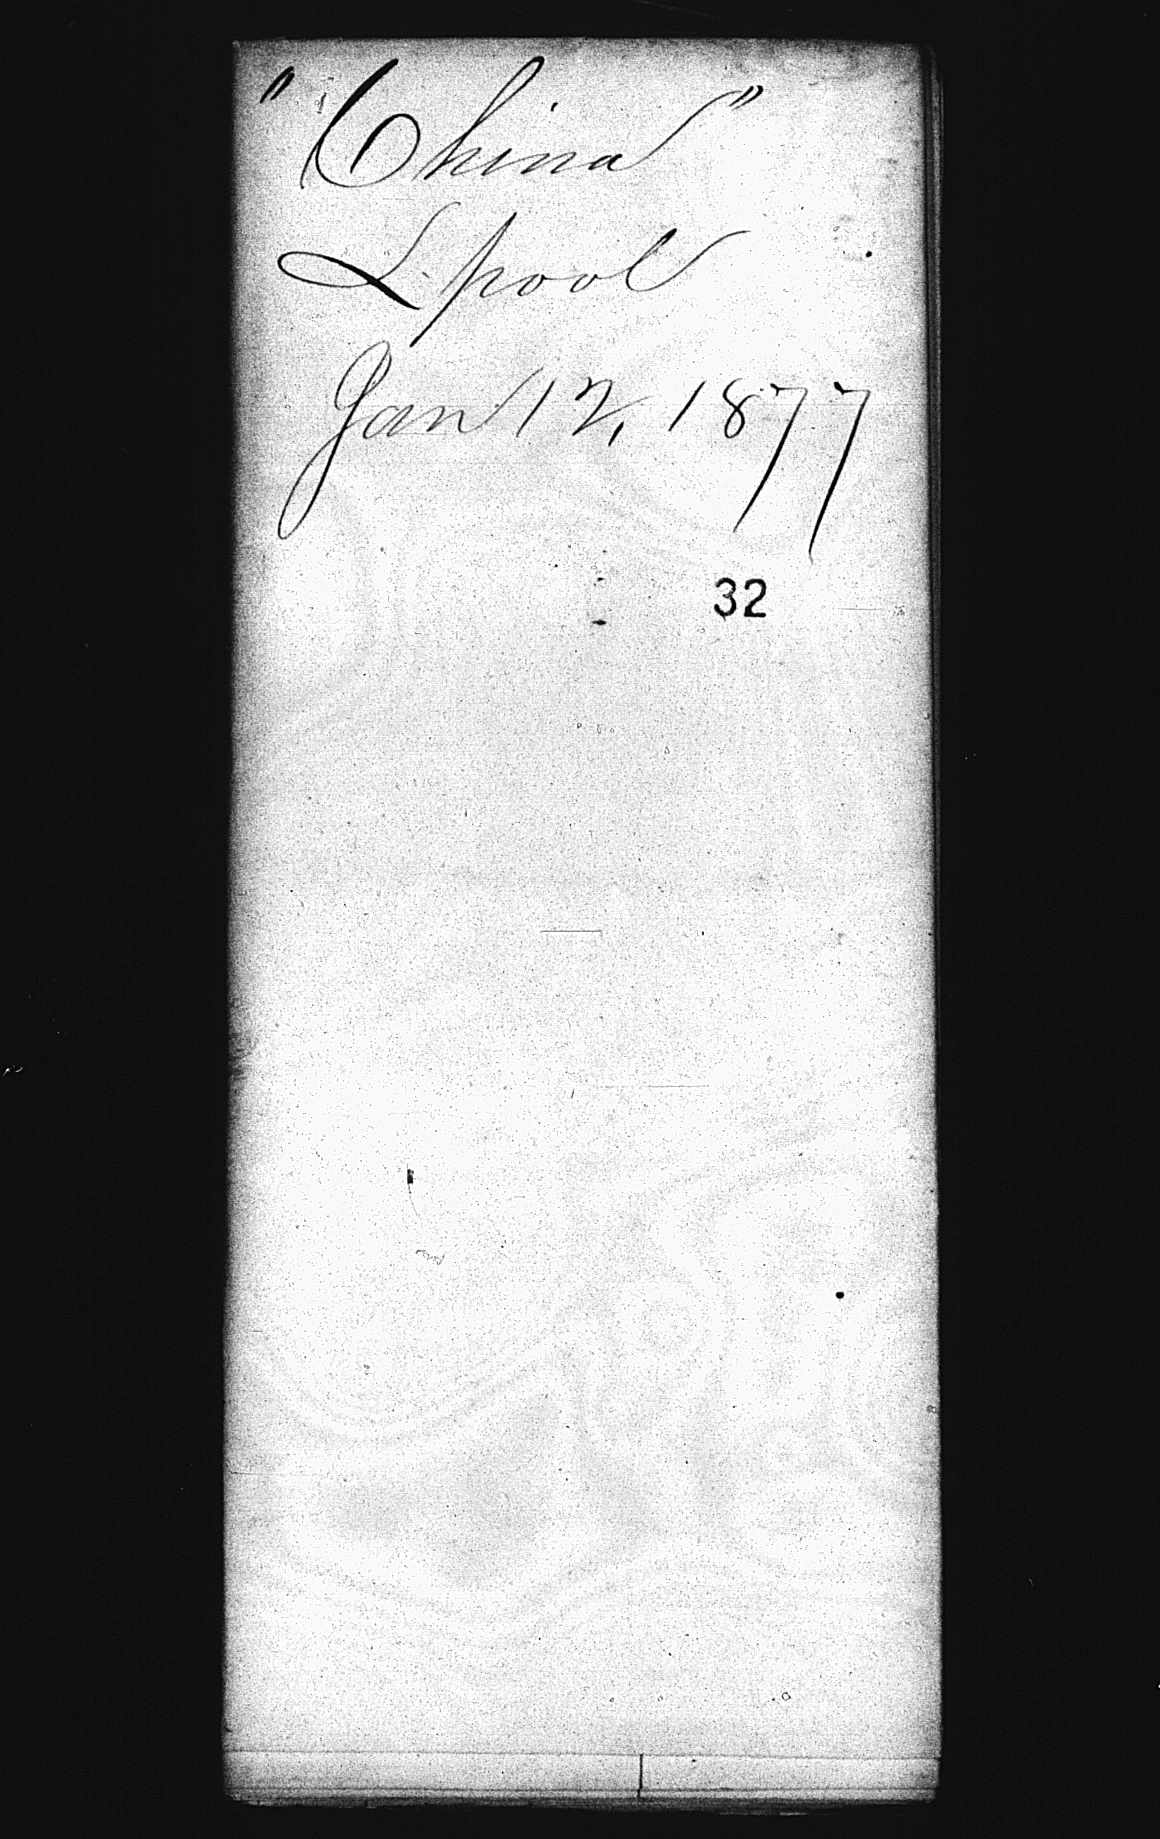 "China"
L.pool
Jan 12, 1877
32